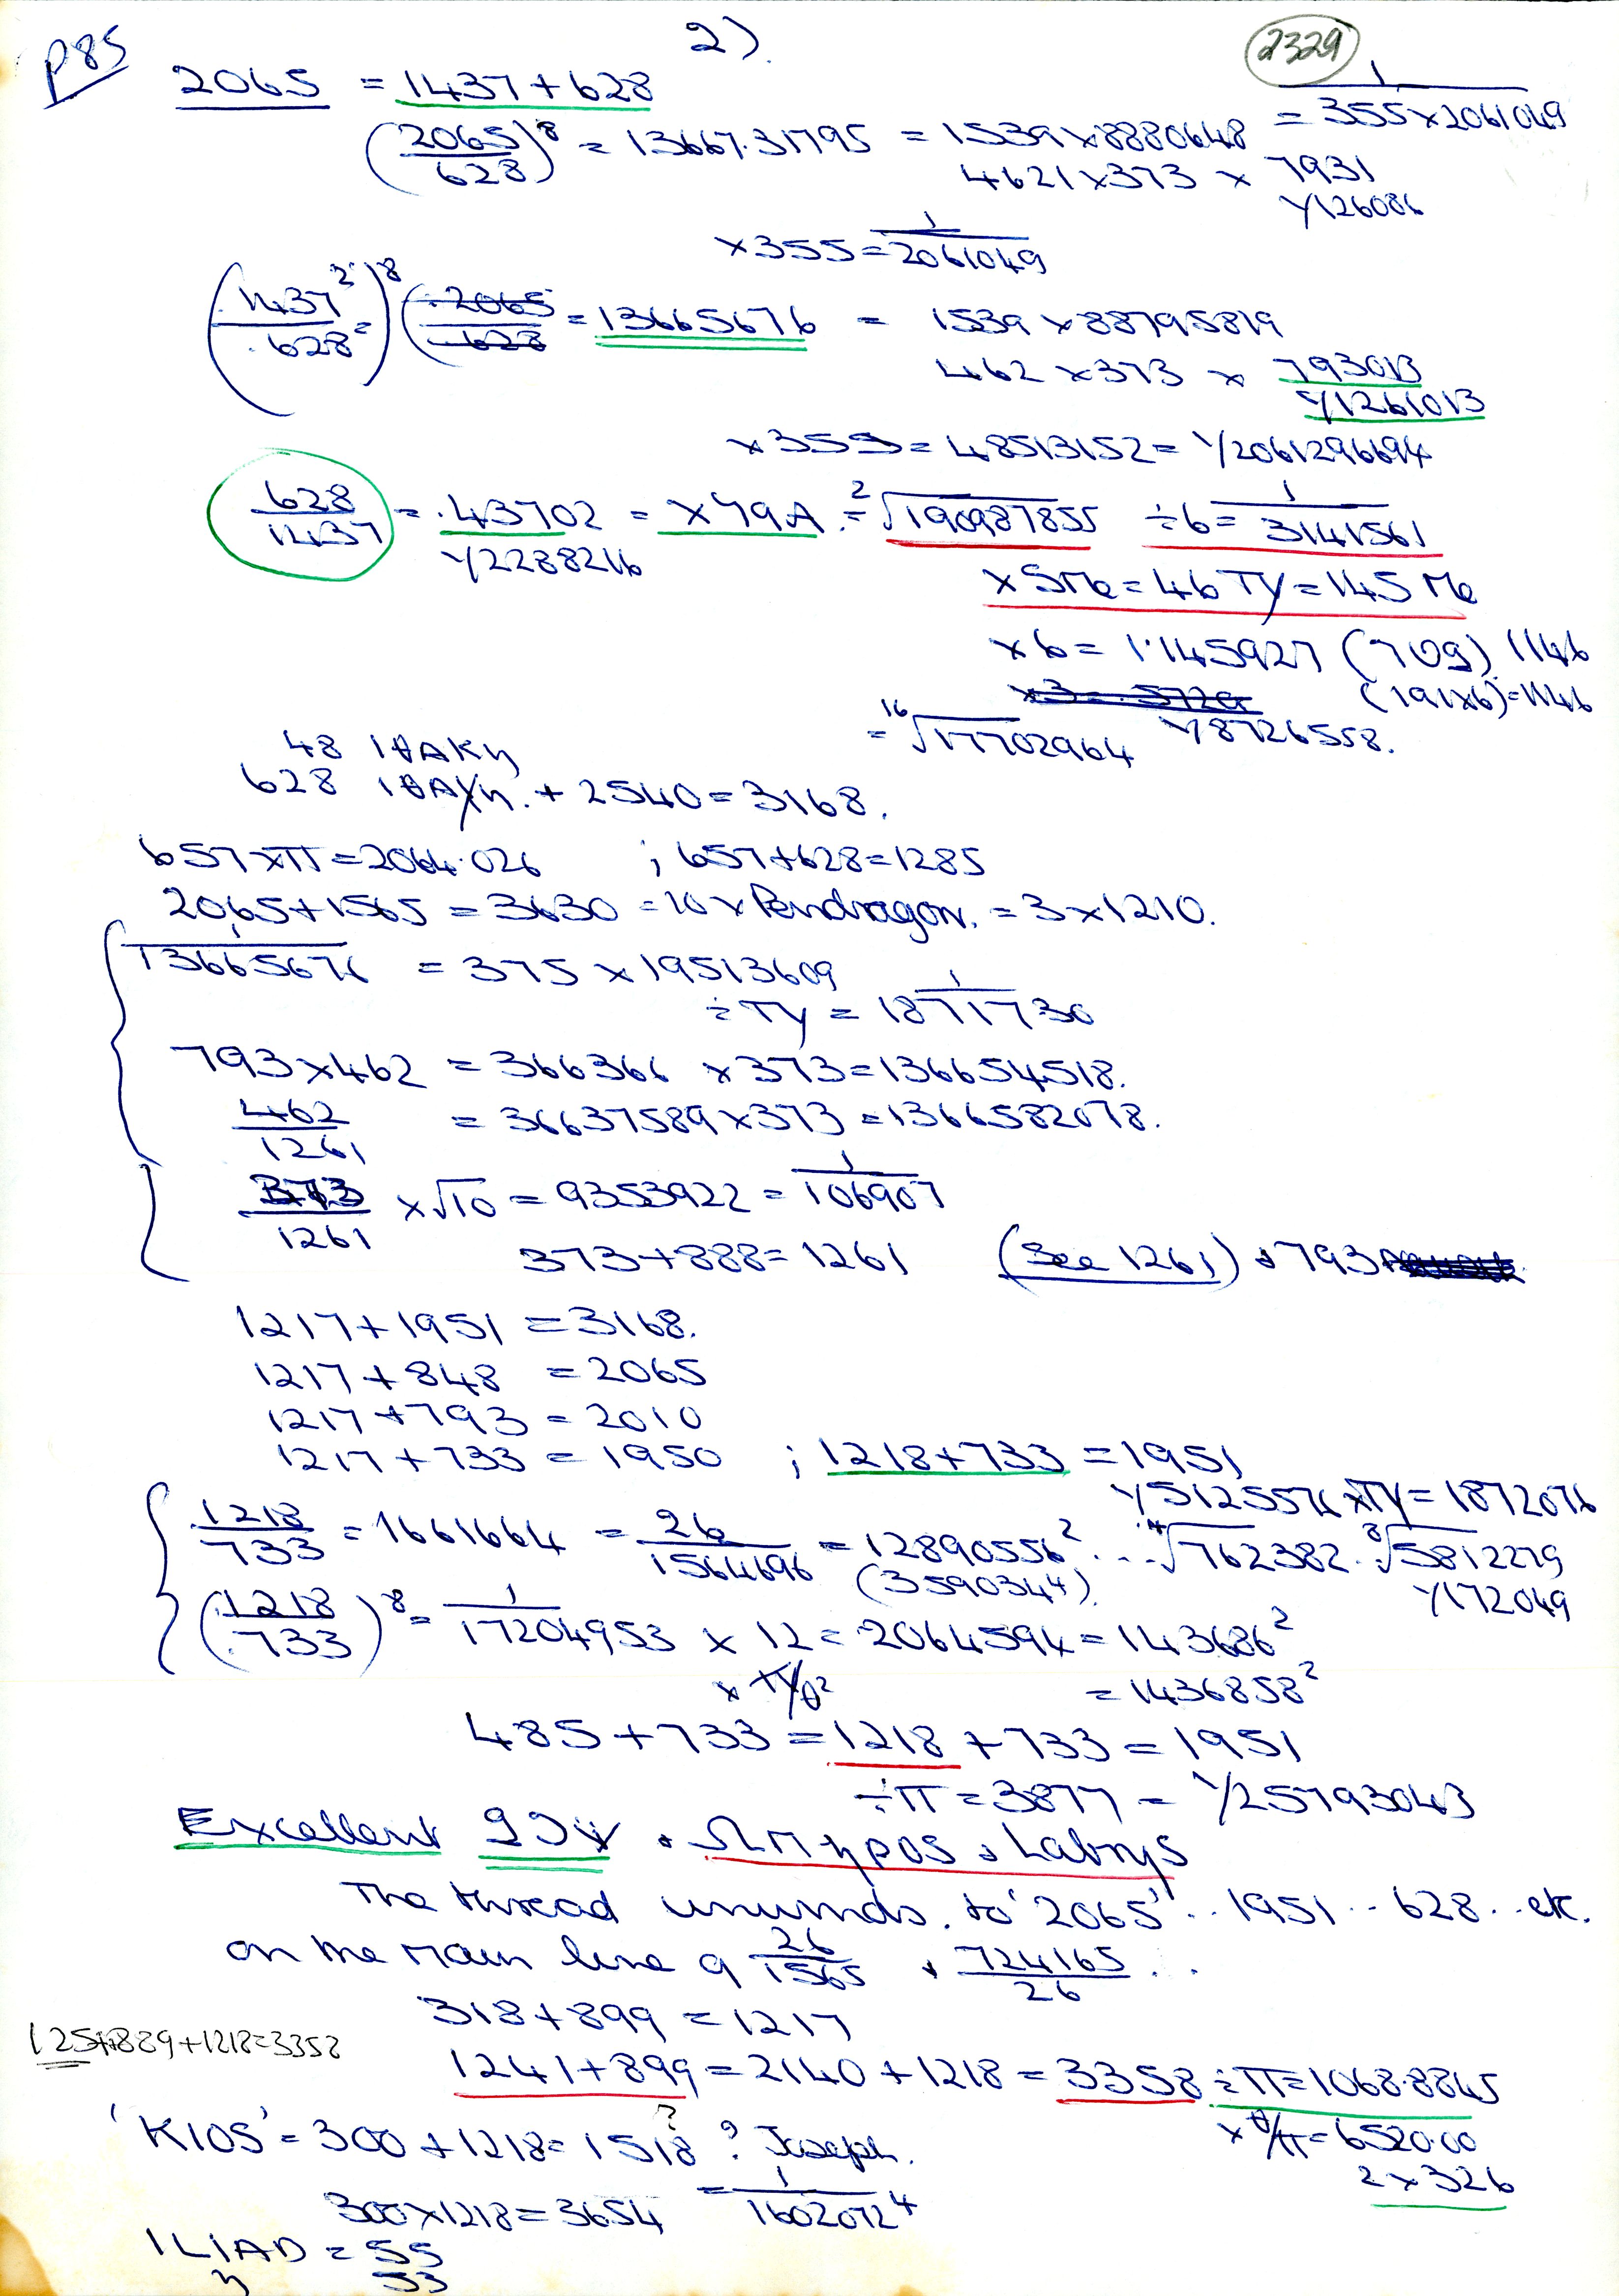 P85
2).
2329
2065 = 1437 + 628
(2065/628)^8 = 13667.31795 = 1539 x 8880648 = 1/355 x 2061049
4621 x 373 x 7931
1/126086
x 355 = 1/2061049
(1437^2/628 =)^8 = 13665676 = 1539 x 88795819
462 x 373 x 793013
1/1261013
x 355 = 48513152 = 1/2061296694
628/1437 = .43702 = x 79A = ²√190987855 ÷ 6 = 1/3141561
1/2288216
x 5Me = 46 TY = 145 Me
x 6 = 1.145927 (709) 1146
(191x6) = 1146
= 16√17702964 1/8726558.
48 ΙΘΑΚη
628 + 2540 = 3168.
657 x π = 2064.026 ; 657 + 628 = 1285
2065 + 1565 = 3630 = 10 x Pendragon. = 3 x 1210.
1/13665676 = 375 x 19513609
÷ TY = 1/1871730
793 x 462 = 366366 x 373 = 136654518.
462/1261 = 36637589 x 373 = 1366582078.
373/1261 x √10 = 9353922 = 1/106907
373 + 888 = 1261 (See 1261) + 793
1217 + 1951 = 3168.
1217 + 848 = 2065
1217 + 793 = 2010
1217 + 733 = 1950 ; 1218 + 733 = 1951
1/5125576 x TY = 1872076
1218/733 = 1661664 = 26/1564696 = 12890556² ... 14√762382 . 8√5812279
(3590344) 1/172049
(1218/733)^8 = 1/17204953 x 12 = .2064594 = 143686²
x TY/θ² = 1436858²
485 + 733 = 1218 + 733 = 1951
÷ π = 3877 = 1/25793043
Excellent
Labrys
The thread unwinds. to '2065' .. 1951 .. 628 .. etc.
on the main line 9 26/1565 + 724165/26 ..
318 + 899 = 1217
1251+889+1218=3358
1241 + 899 = 2140 + 1218 = 3358 ÷ π = 1068.8845
'KIOS' = 300 + 1218 = 1518 ? Joseph.
x θ/π = 6520.00
2 x 326
300 x 1218 = 3654 = 1/1602072⁴
ILIAD = 55
η 53